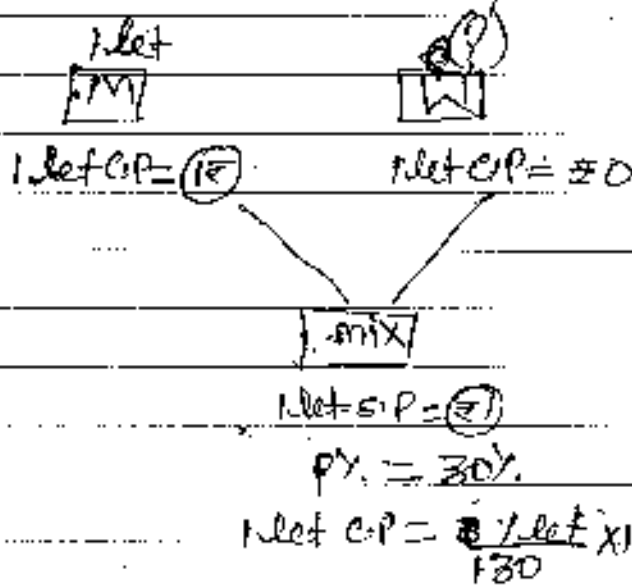 1 let
M W
1 let C.P = 1₹ 1 let C.P = ₹0
mix
1 let S.P = ₹1
P% = 30%
1 let C.P = 1 let × 1
130